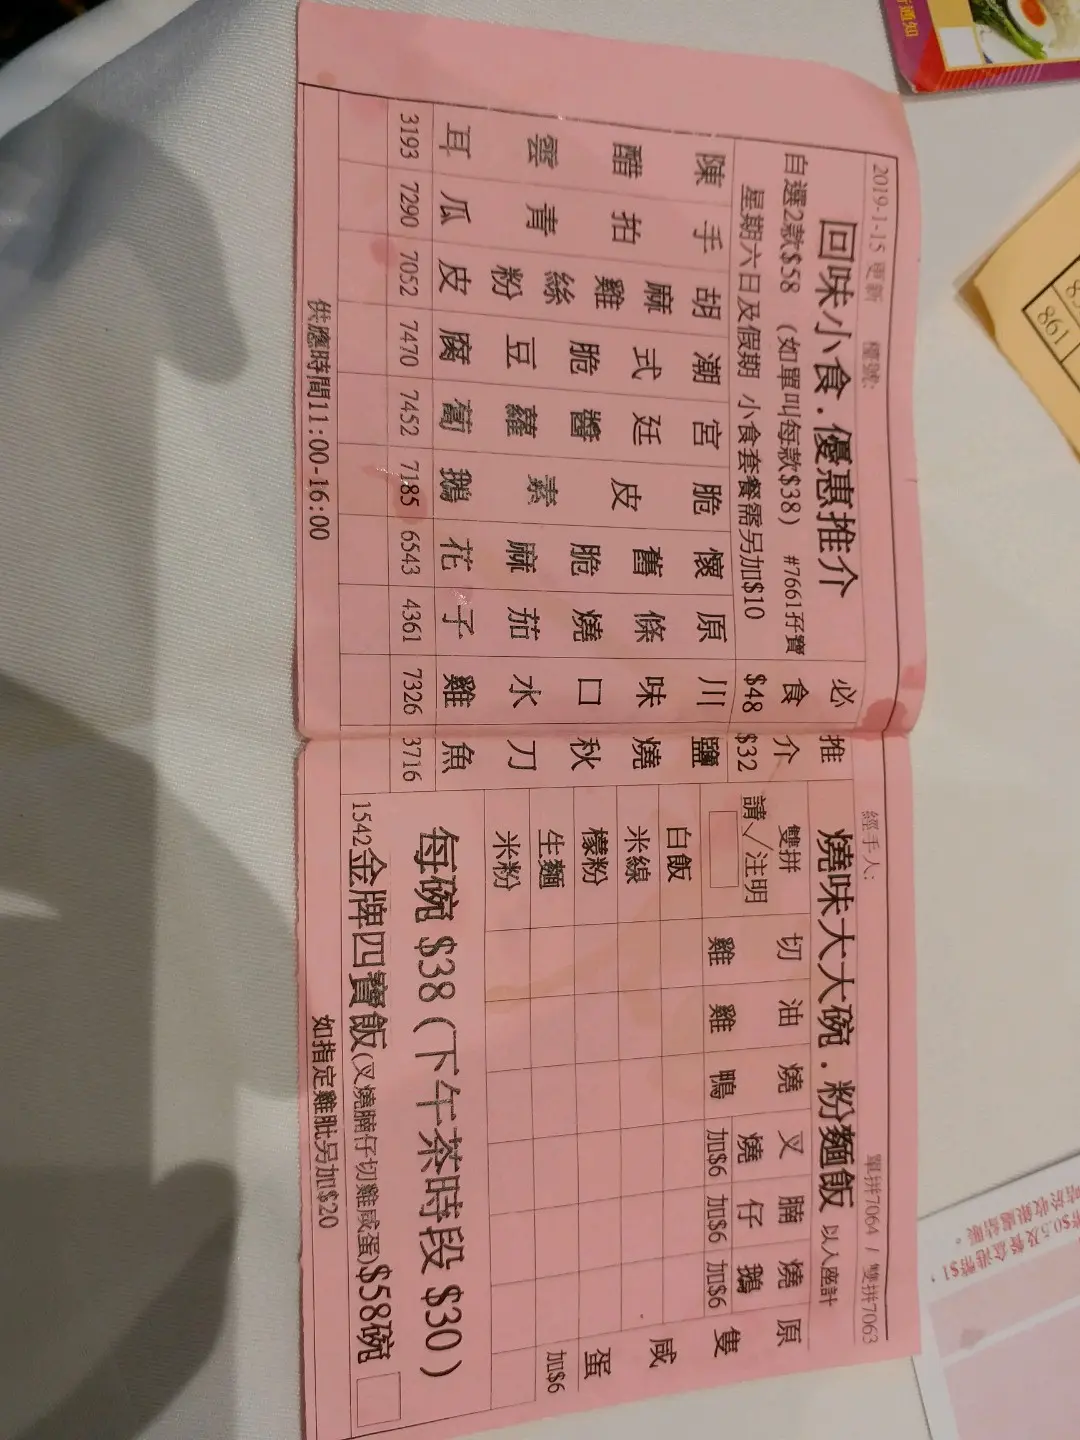 2019-1-15 更新 檯號:
回味小食.優惠推介
自選2款$58 (如單叫每款$38) #7661孖寶
星期六日及假期 小食套餐需另加$10
必食 $48
推介 $32
陳醋雲耳 3193
手拍青瓜 7290
胡麻雞絲粉皮 7052
潮式脆豆腐 7470
宮廷醬蘿蔔 7452
脆皮素鵝 7185
懷舊脆麻花 6543
原條燒茄子 4361
川味口水雞 7326
鹽燒秋刀魚 3716
供應時間11:00-16:00
經手人: 單拼7064 / 雙拼7063
燒味大大碗.粉麵飯 以入座計
雙拼
請√注明
切雞
油雞
燒鴨
叉燒 加$6
腩仔 加$6
燒鵝 加$6
原隻咸蛋 加$6
白飯
米線
檬粉
生麵
米粉
每碗 $38 (下午茶時段 $30)
1542金牌四寶飯(叉燒腩仔切雞咸蛋)$58碗
如指定雞肶另加$20
861